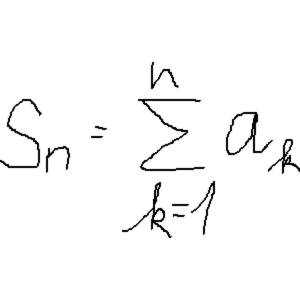 Sₙ = ∑ₖ₌₁ⁿ aₖ